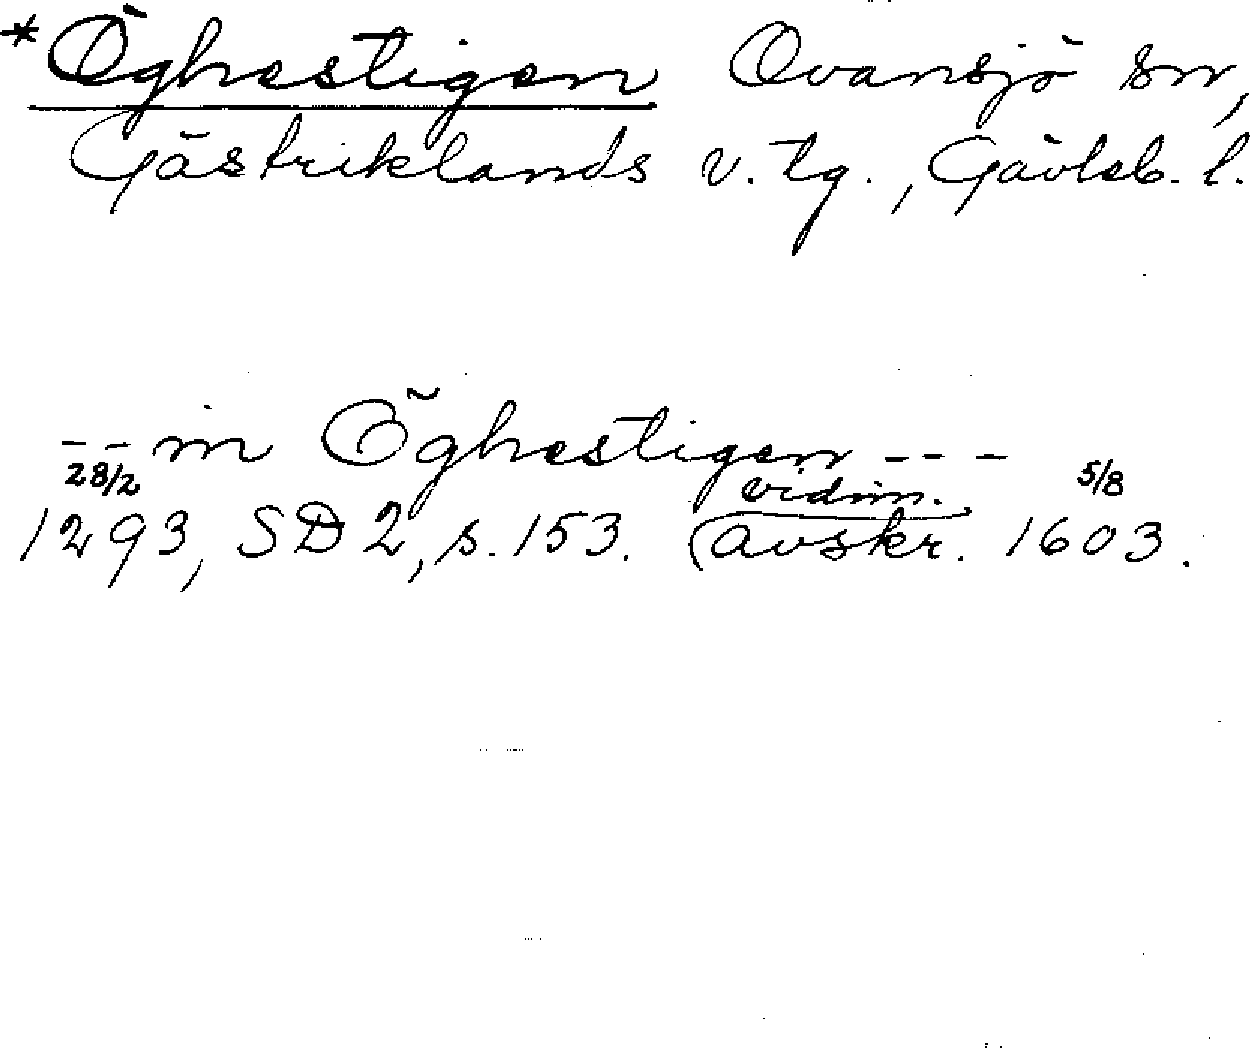 *Öghestigen Ovansjö sn,
Gästriklands v. tg., Gävleb. l.
-- in Öghestigen ---
28/2 vidim. 5/8
1293, SD 2, s. 153. (avskr. 1603.